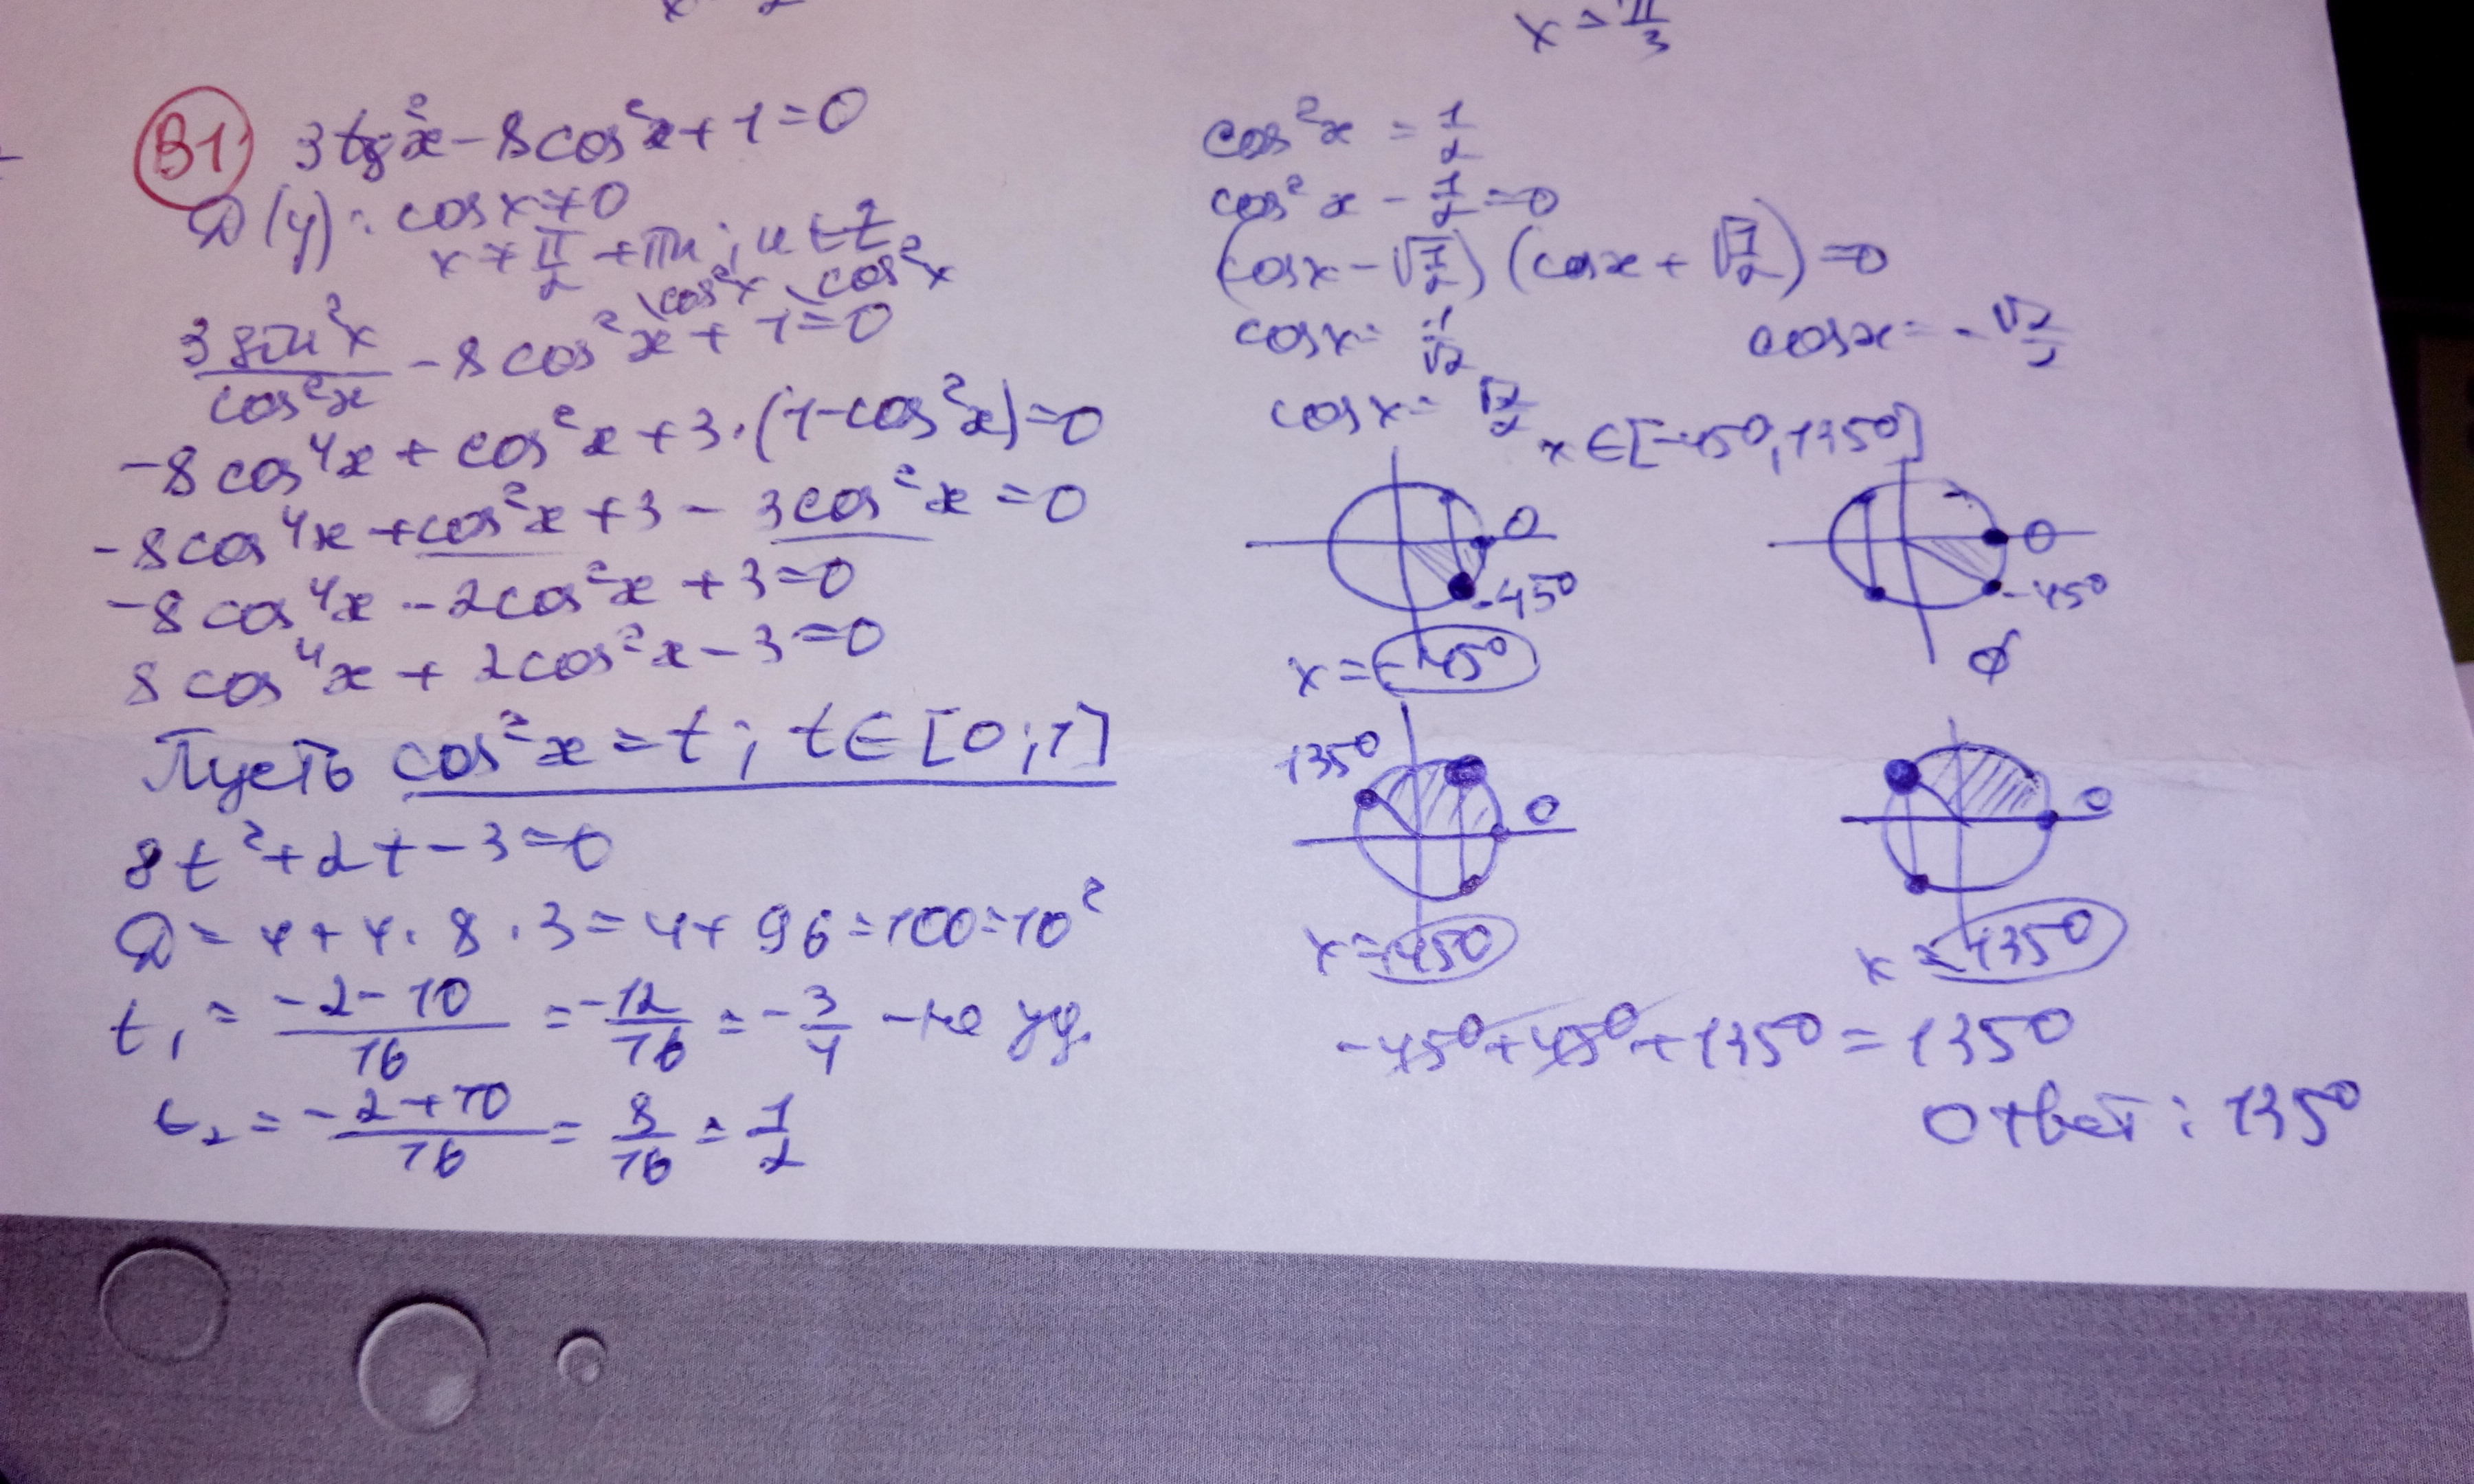 x = π/3
B1
3tg²x - 8cos²x + 1 = 0
D(y): cosx ≠ 0
x ≠ π/2 + πn; n ∈ Z
3sin²x/cos²x - 8cos²x \cos²x + 1 \cos²x = 0
-8cos⁴x + cos²x + 3·(1-cos²x) = 0
-8cos⁴x + cos²x + 3 - 3cos²x = 0
-8cos⁴x - 2cos²x + 3 = 0
8cos⁴x + 2cos²x - 3 = 0
Пусть cos²x = t; t ∈ [0;1]
8t² + 2t - 3 = 0
D = 4 + 4·8·3 = 4 + 96 = 100 = 10²
t₁ = (-2-10)/16 = -12/16 = -3/4 - не уд.
t₂ = (-2+10)/16 = 8/16 = 1/2
cos²x = 1/2
cos²x - 1/2 = 0
(cosx - √(1/2)) (cosx + √(1/2)) = 0
cosx = 1/√2
cosx = -√2/2
cosx = √2/2
x ∈ [-45°, 135°]
0
-45°
x = -45°
0
-45°
∅
135°
0
x = 45°
0
x = 135°
-45° + 45° + 135° = 135°
Ответ: 135°